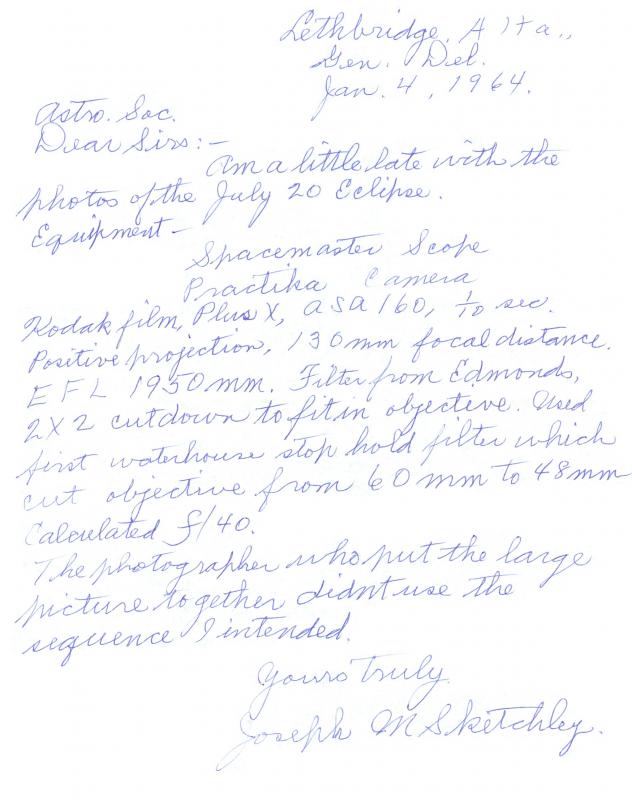 Lethbridge, Alta.,
Gen. Del.
Jan. 4, 1964.
Astro. Soc.
Dear Sirs:-
Am a little late with the
photos of the July 20 Eclipse.
Equipment-
Spacemaster Scope
Practika Camera
Kodak film, Plus X, ASA 160, 1/10 sec.
Positive projection, 130mm focal distance.
EFL 1950mm. Filter from Edmonds,
2X2 cutdown to fit in objective. Used
first waterhouse stop hold filter which
cut objective from 60mm to 48mm
Calculated f/40.
The photographer who put the large
picture together didnt use the
sequence I intended.
Yours Truly
Joseph M Sketchley.